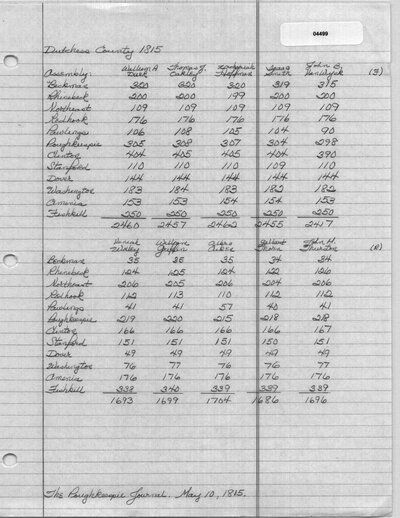 04499
Dutchess County 1815
William A. Thomas J. Isaac John B.
Assembly: Duer Oakley Hoffman Smith Van Wyck
Beekman 320 320 320 319 315
Rhinebeck 200 200 199 200 200
Northeast 109 109 109 109 109
Redhook 176 176 176 176 176
Pawlings 106 108 105 104 90
Poughkeepsie 305 308 307 304 298
Clinton 404 405 405 404 390
Stanford 110 110 110 109 110
Dover 144 144 144 144 144
Washington 183 184 183 182 182
Amenia 153 153 154 154 153
Fishkill 250 250 250 250 250
2460 2457 2462 2455 2417
John H.
Beekman 35 35 35 34 34
Rhinebeck 124 125 124 122 126
Northeast 206 205 206 204 206
Redhook 112 113 110 112 112
Pawlings 41 41 57 40 41
Poughkeepsie 219 220 215 218 218
Clinton 166 166 166 166 167
Stanford 151 151 151 150 151
Dover 49 49 49 49 49
Washington 76 77 76 76 77
Amenia 176 176 176 176 176
Fishkill 338 340 339 339 339
1693 1699 1704 1686 1696
The Poughkeepsie Journal. May 10, 1815.